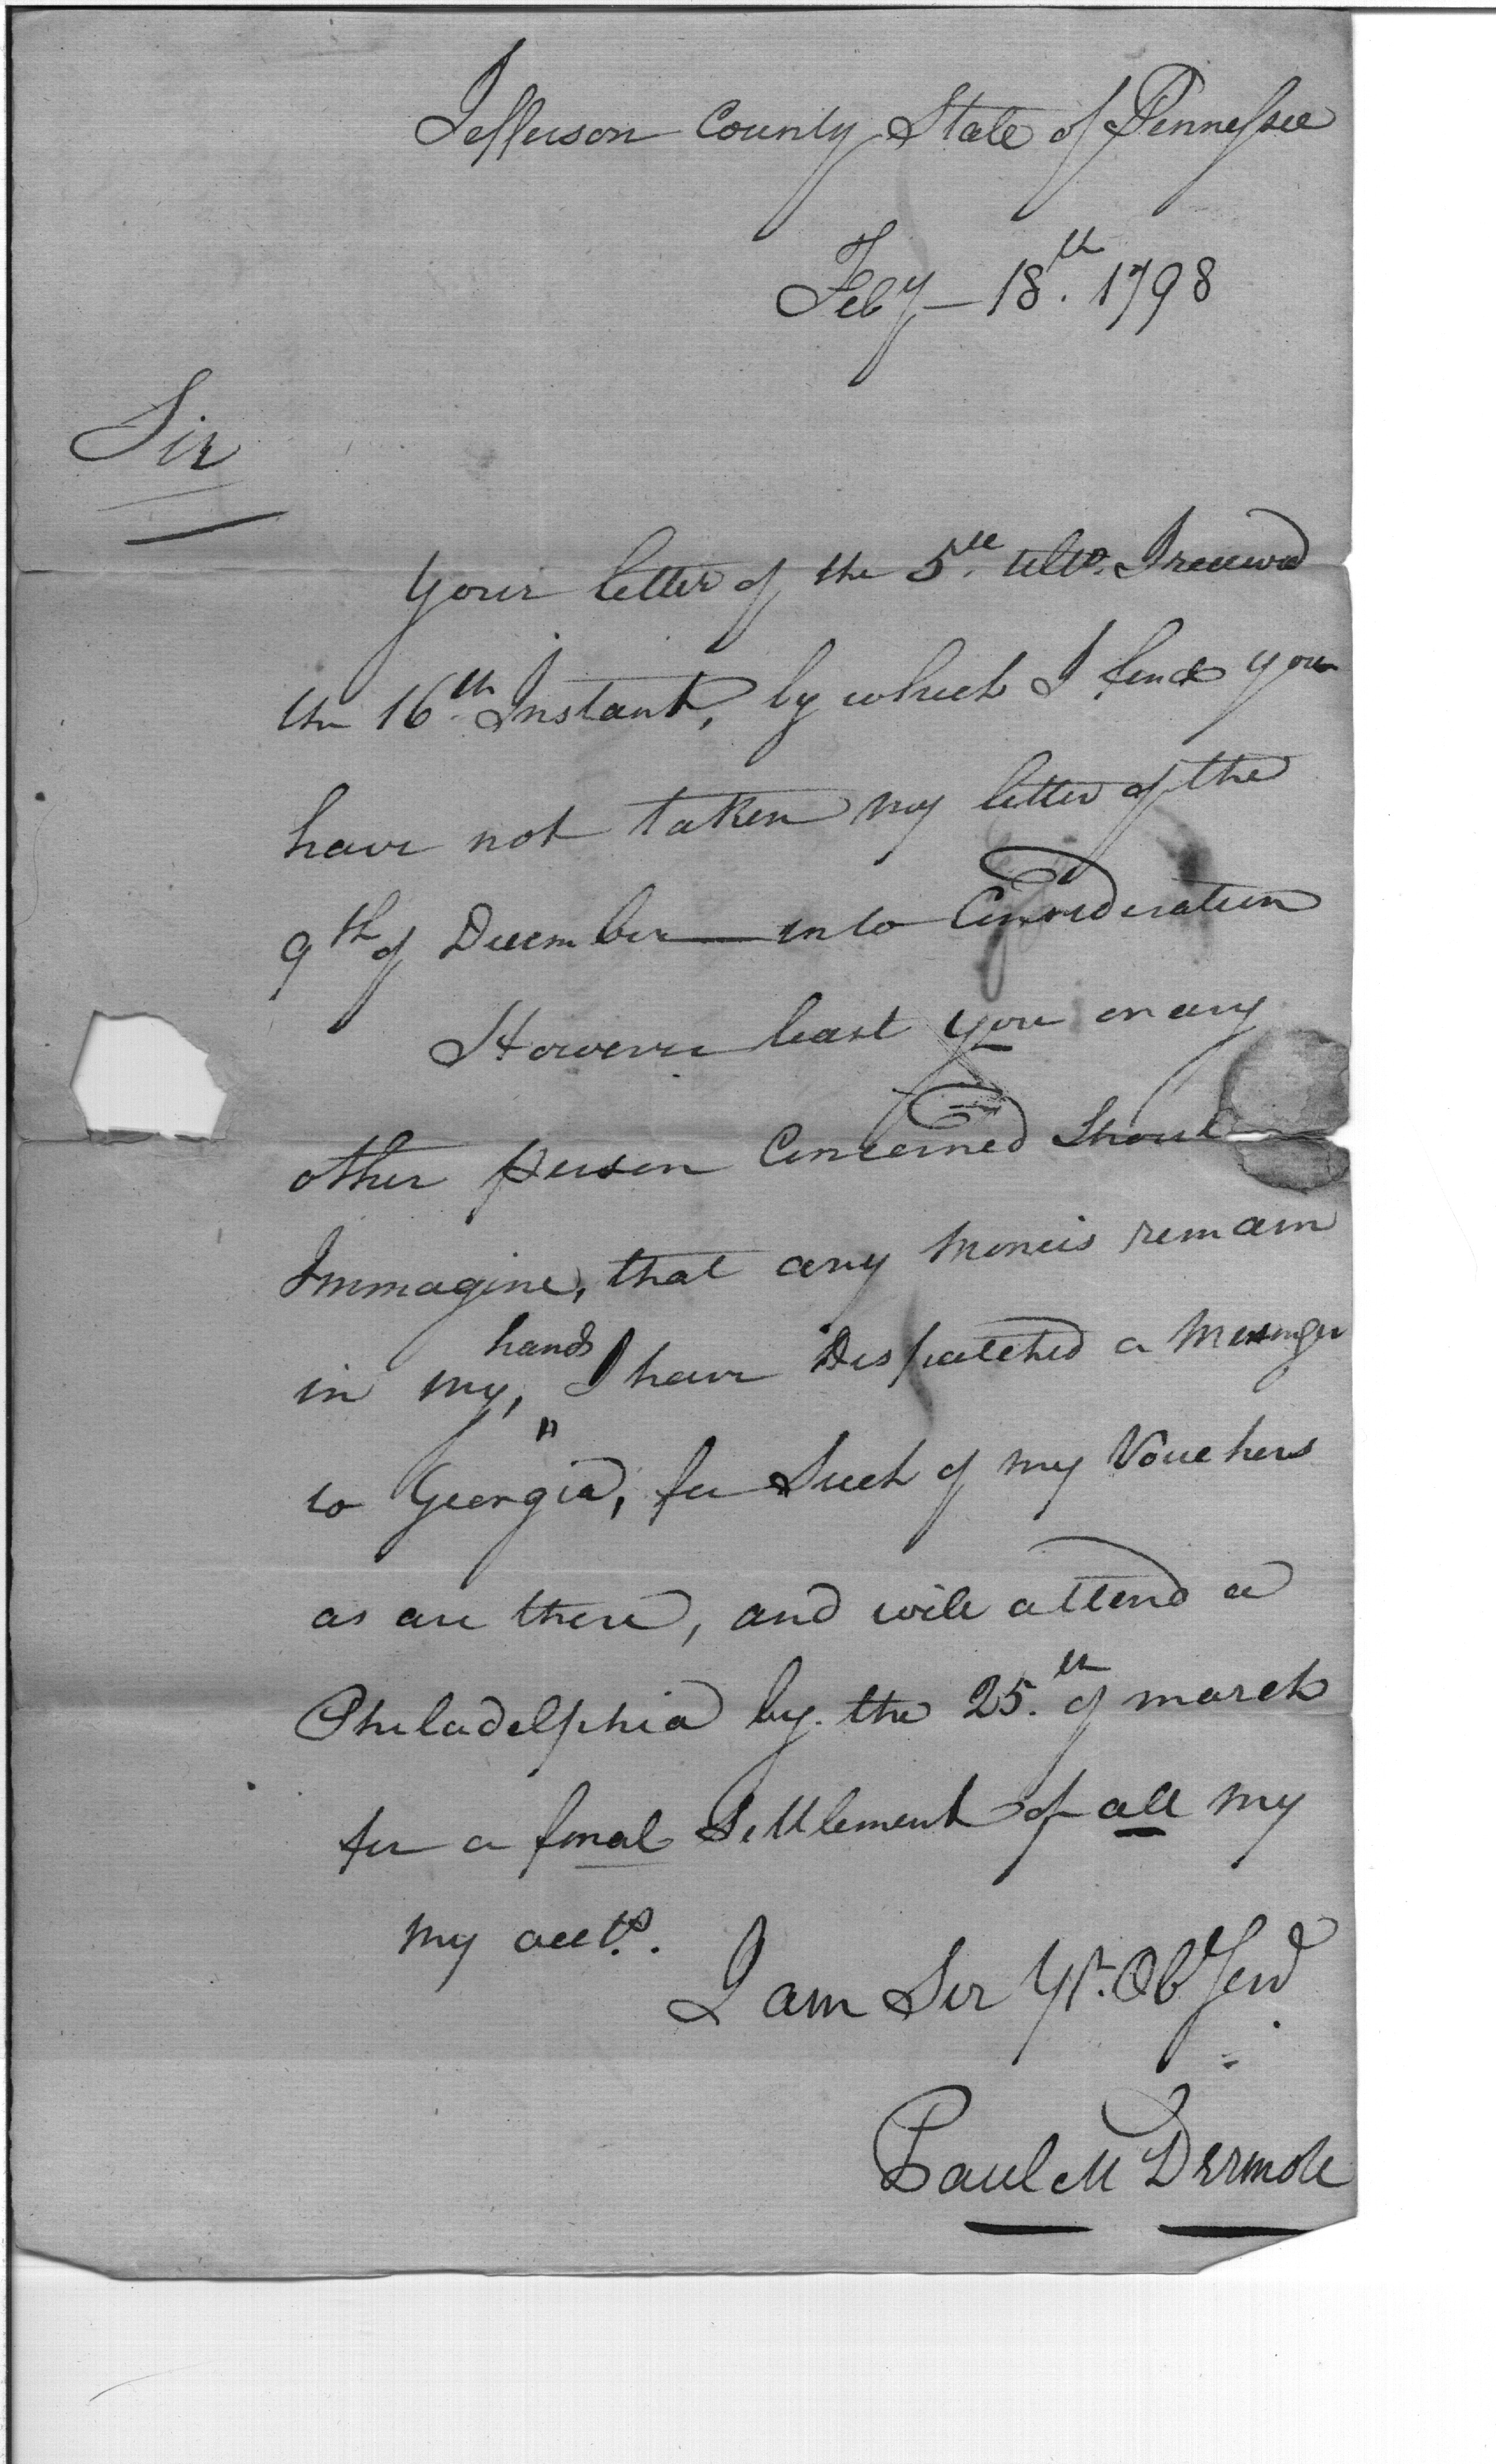 Jefferson County State of Tennessee
Feby - 18th. 1798
Sir
Your letter of the 5th. ulto. I received
the 16th Instant, by which I find you
have not taken my letter of the
9th of December — into Consideration
However least you or any
other person Concerned Should
Immagine, that any Moneis remain
in my, hands I have Dispatched a Messenger
to Georgia, for Such of my Vouchers
as are there, and will attend a
Philadelphia by the 25.th of march
for a final Settlement of all my
my accts.
I am Sir Yr. Ob Serv
Paul McDermott